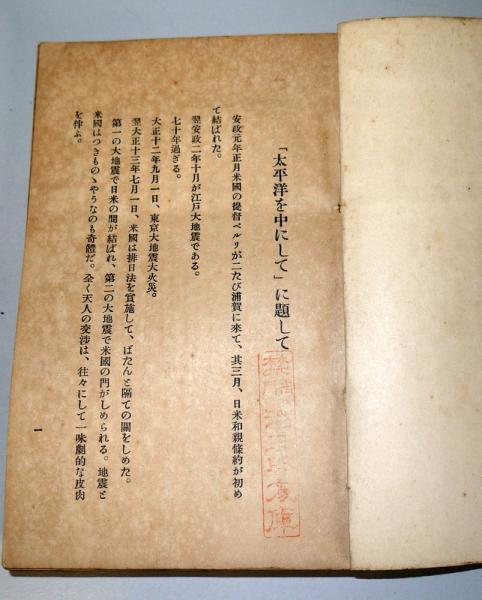 「太平洋を中にして」に題して
安政元年正月米國の提督ペルリが二たび浦賀に來て、其三月、日米和親條約が初め
て結ばれた。
翌安政二年十月が江戸大地震である。
七十年過ぎる。
大正十二年九月一日、東京大地震大火災。
翌大正十三年七月一日、米國は排日法を實施して、ばたんと隔ての關をしめた。
第一の大地震で日米の間が結ばれ、第二の大地震で米國の門がしめられる。地震と
米國はつきものゝやうなのも奇體だ。全く天人の交渉は、往々にして一味劇的な皮肉
を伴ふ。
一